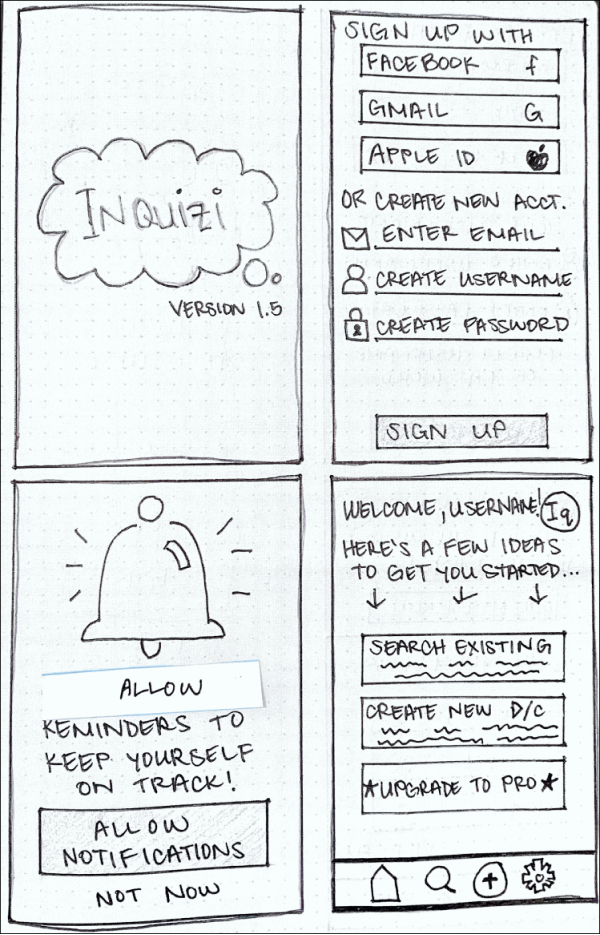 INQUIZI
VERSION 1.5
SIGN UP WITH
FACEBOOK f
GMAIL G
APPLE ID
OR CREATE NEW ACCT.
ENTER EMAIL
CREATE USERNAME
CREATE PASSWORD
SIGN UP
ALLOW
REMINDERS TO
KEEP YOURSELF
ON TRACK!
ALLOW
NOTIFICATIONS
NOT NOW
WELCOME, USERNAME! Iq
HERE'S A FEW IDEAS
TO GET YOU STARTED...
SEARCH EXISTING
CREATE NEW D/C
★UPGRADE TO PRO★